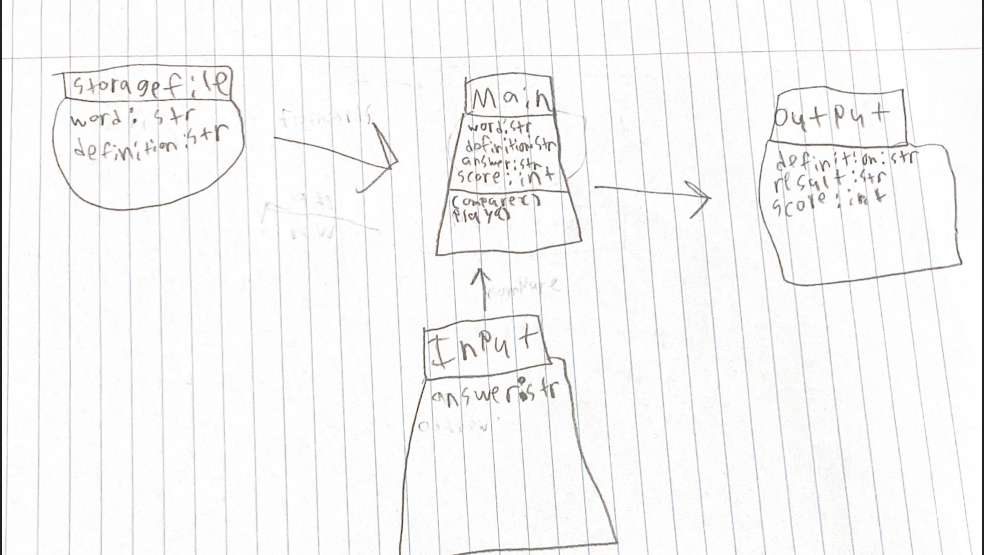 storagefile
word: str
definition:str
Main
word:str
definition:str
answer:str
score:int
compare()
play()
output
definition:str
result:str
score:int
Input
answer:str